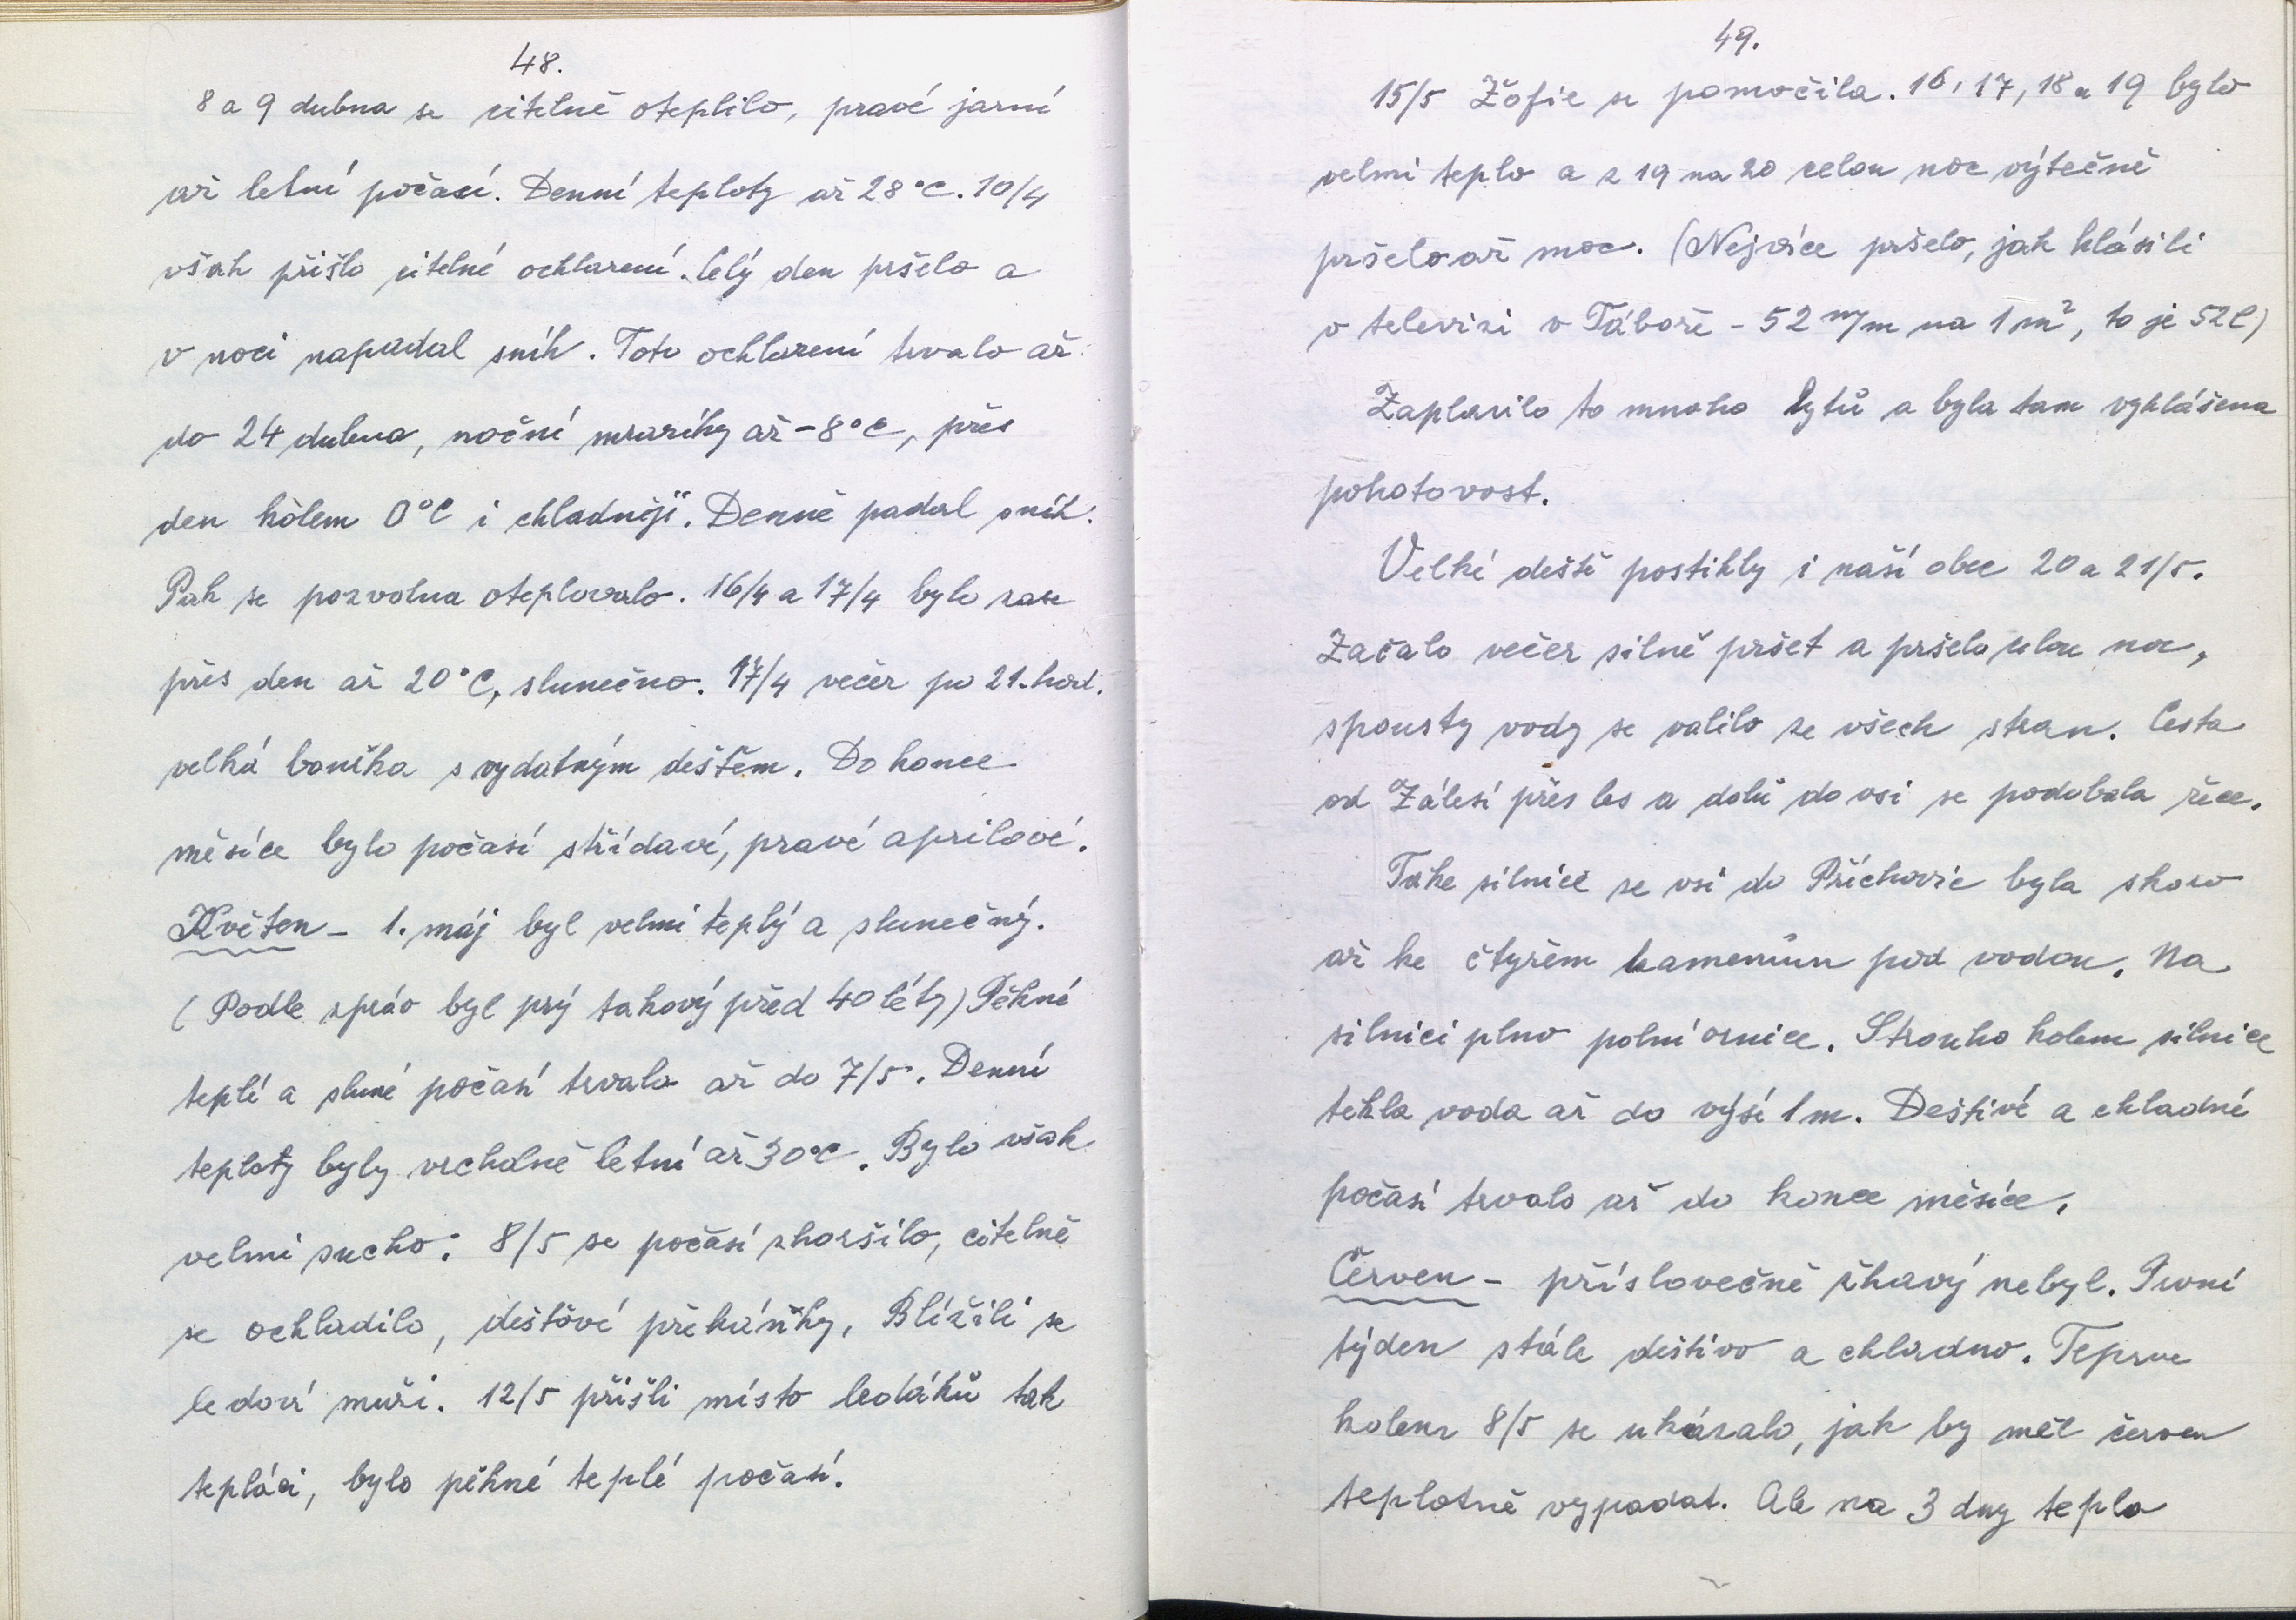 48.
8 a 9 dubna se citelně oteplilo, pravé jarní
až letní počasí. Denní teploty až 28°C. 10/4
však přišlo citelné ochlazení. Celý den pršelo a
v noci napadal sníh. Toto ochlazení trvalo až
do 24 dubna, noční mrazíky až -8°C, přes
den kolem 0°C i chladněji. Denně padal sníh.
Pak se pozvolna oteplovalo. 16/4 a 17/4 bylo zase
přes den až 20°C, slunečno. 17/4 večer po 21. hod.
velká bouřka s vydatným deštěm. Do konce
měsíce bylo počasí střídavé, pravé aprilové.
Květen - 1. máj byl velmi teplý a slunečný.
(Podle zpráv byl prý takový před 40 léty) Pěkné
teplé a sluné počasí trvalo až do 7/5. Denní
teploty byly vrcholně letní až 30°C. Bylo však
velmi sucho. 8/5 se počasí zhoršilo, citelně
se ochladilo, dešťové přeháňky, Blížili se
ledoví muži. 12/5 přišli místo ledáků tak
tepláci, bylo pěkné teplé počasí.
49.
15/5 Žofie se pomočila. 16, 17, 18 a 19 bylo
velmi teplo a z 19 na 20 celou noc výtečně
pršelo až moc. (Nejvíce pršelo, jak hlásili
v televizi v Táboře - 52 m/m na 1 m², to je 52 l)
Zaplavilo to mnoho bytů a byla tam vyhlášena
pohotovost.
Velké deště postihly i naší obec 20 a 21/5.
Začalo večer silně pršet a pršelo celou noc,
spousty vody se valilo ze všech stran. Cesta
od Zálesí přes les a dolů do vsi se podobala řece.
Take silnice ze vsi do Příchovic byla skoro
až ke čtyřem kamenům pod vodou. Na
silnici plno polní ornice. Strouho kolem silnice
tekla voda až do výsí 1 m. Deštivé a chladné
počasí trvalo až do konce měsíce.
Červen - příslovečně žhavý nebyl. První
týden stále deštivo a chladno. Teprve
kolem 8/5 se ukázalo, jak by měl červen
teplotně vypadat. Ale na 3 dny teplo